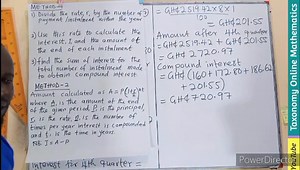 METHOD-1
1) Divide the rate, r, by the number of
payment/instalment within the year
2) Use this rate to calculate the
interest, I and the amount at
the end of each instalment
3) Find the sum of interest for the
total number of instalment made
to obtain Compound interest
METHOD-2
Amount calculated as A = P(1+
where A, is the amount at the end
of the given period, P is the principal,
r, is the rate, n is the number of
times per year interest is compounded
and t is the time in years
NB: I = A - P
Interest for 4th quarter =
= GH¢2519.42 x 8 x 1
100
= GH¢201.55
Amount after 4th quarter
= GH¢2519.42 + GH¢201.55
= GH¢2720.97
Compound interest
= GH¢(160+172.80+186.62
+201.55)
= GH¢720.97
YouTube: Taxonomy Online Mathematics
PowerDirector